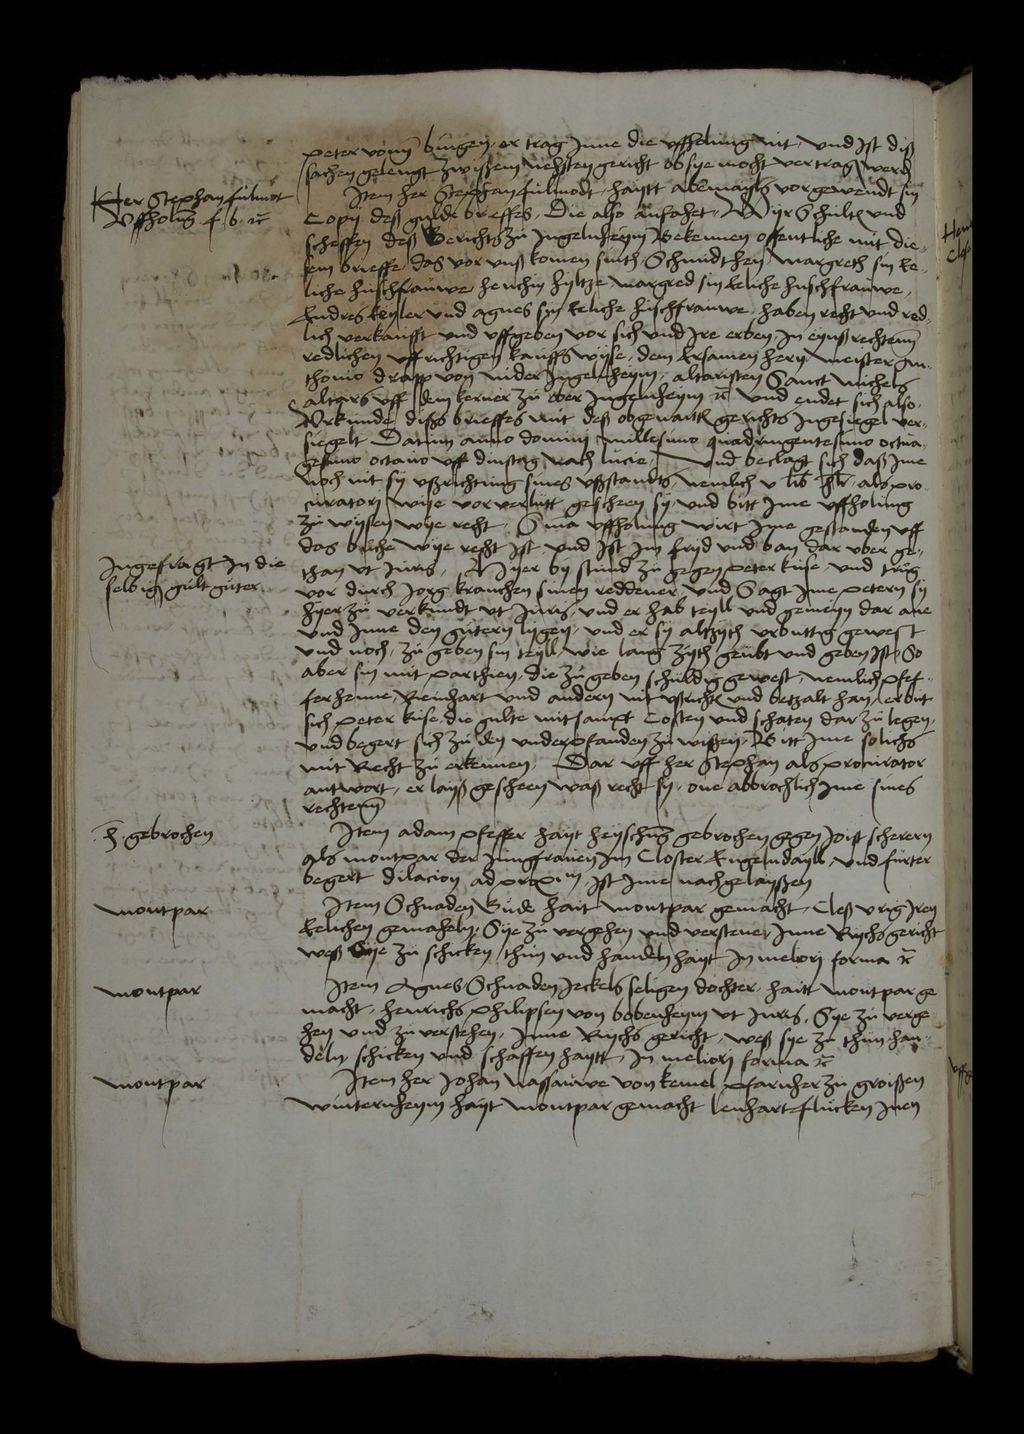 peter vonn bingen, er trag Jnne die vffholung nit, und ist diß
sachen gelengt zwissem nehsten gericht ob sye mocht vertrag werd
Her Stephan fulmot
Vffholung f. b. rc
Item her Stephan fulmodt haytt abemayls vorgewendt sin
Copij deß gulde brieffes, Die also anfahet, Wyr Schultes und
scheffen deß Gerichts zu Jngelnheym Bekennen offentliche mit die-
sem brieffe das vor vnß komen sinth Schmidthen margreth sin Ee-
liche hußfrauwe, henchin hyltze margred sin Eeliche hußfrauwe,
Endres keyler und agnes syn Eeliche hußfrauwe, haben recht und red-
lich verkaufft und vffgeben vor sich und Jre erben in eynß rechtenn
redlichen vffrichtigen kauffs wyse, dem Ersamen hern meister an-
thonio drapp von nider Jngelnheym, altaristen Sanct michels
altars vff dem kerner zu ober Jngelnheym rc und endet sich also,
Vrkunde dißs brieffes mit deß obgenantten gerichts Jngesiegel ver-
siegelt Datum anno domini millesimo quadringentesimo octua-
gesimo octavo vff dinstag nach lucie, Und beclagt sich daß Jme
noch nit sy vßrichtung sines vßstandts nemlich v lib hlr, als pro-
curatorij wyse vorverlutt gescheen sy, und bitt Jme vffholung
zu wysen wye recht, Sina vffholung wirt Jme gestanden vff
das buche wye recht ist und ist im fryd und ban dar vber ge-
Jngefragt in die
selbig gult guter
than vt Juris, Hyer by stund zu gegen peter kuse, und trug
vor durch Jorg kranchen sinen reddener, und Sagt Jme petern sy
hyer zu verkundt vt Juris und er hab teyll und gemeyn dar ane
und Jnne den gutern lygen, und er sy altzyth vrbuttig gewest
und noch, zu geben sin teyll, wie lang zyth geubt und geben ist, So
aber sin mit parthien, die zu geben schuldig gewest, nemlich pfef-
ferhenne, Reinhart und andern nit vffricht und betzalt han, erbut
sich peter kuse, die gulte mitsampt Costen und schaten dar zu legen,
und begert sich zu den underpfanden zu wissen, Bitt Jme solichs
mit Recht zu erkennen, Dar vff her Stephan als procurator
antwort, er layß gescheen waß recht sy, one abbrochlich Jme sines
rechtenn
h gebrochen
Item adam pfeffer hayt heyschung gebrochen gegen Joist scherern
als montpar der Jungfrauen im Closter Engelndayll, und furter
begert dilacion ad proximum, ist Jme nachgelayssen
montpar
Item Schnaden Bude hait montpar gemacht, Cleß vrig Jren
Eelichen gemaheln, Sye zu vergehen und versteen, Jnne Rychs gericht
weß Sye zu schicken, thun und handeln hayt in meliori forma rc
montpar
Item Agnes Schnaden Jeckels seligen dochter, haitt montpar ge
macht, henrichs philipsen von bobenheym vt Juris, Sye zu verge-
hen und zu verstehen, Jnne Rychs gericht, weß sye zu thun han-
deln, schicken und schaffen haytt, in meliori forma rc
montpar
Item her Johan Nassauwe von kemel pfarnher zu groißen
winternheym hayt montpar gemacht lenhart flucken Jnen